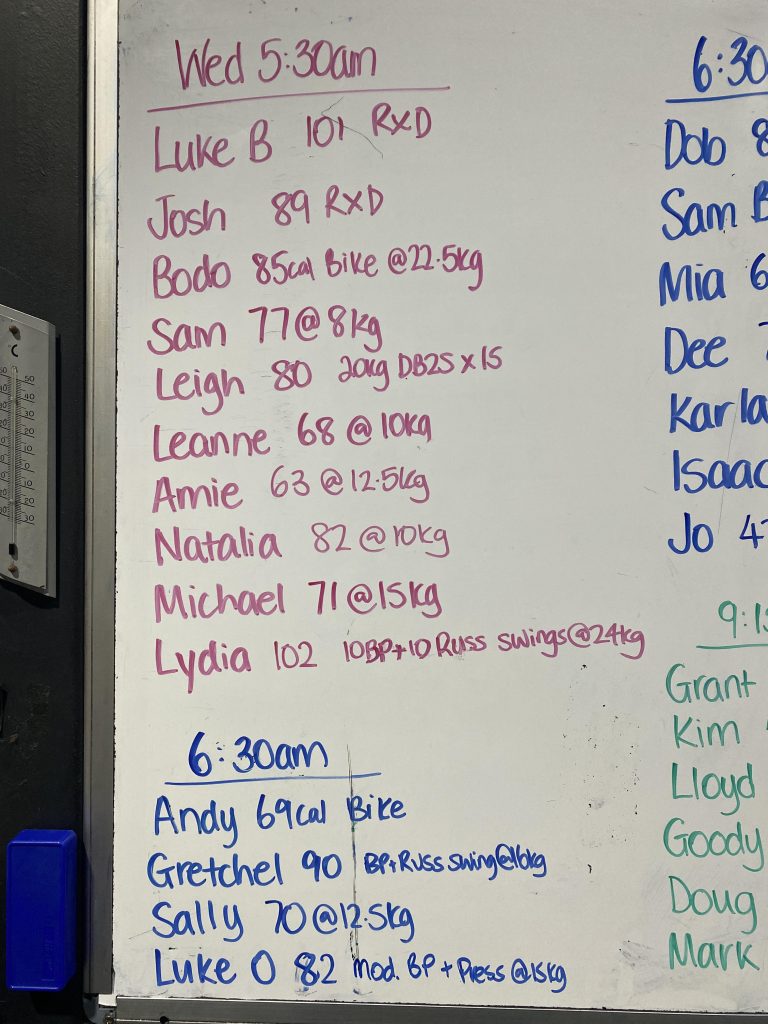 Wed 5:30am
Luke B 101 RXD
Josh 89 RXD
Bodo 85cal Bike @22.5kg
Sam 77@8kg
Leigh 80 20kg DB25 x 15
Leanne 68 @ 10kg
Amie 63 @ 12.5kg
Natalia 82 @ 10kg
Michael 71 @ 15kg
Lydia 102 10BP+10 Russ swings@24kg
6:30am
Andy 69cal Bike
Gretchel 90 BP+Russ swing@16kg
Sally 70 @ 12.5kg
Luke O 82 mod. BP + Press @15kg
6:30
Dob 8
Sam B
Mia 6
Dee 7
Karla
Isaac
Jo 47
9:15
Grant
Kim
Lloyd
Goody
Doug
Mark
C